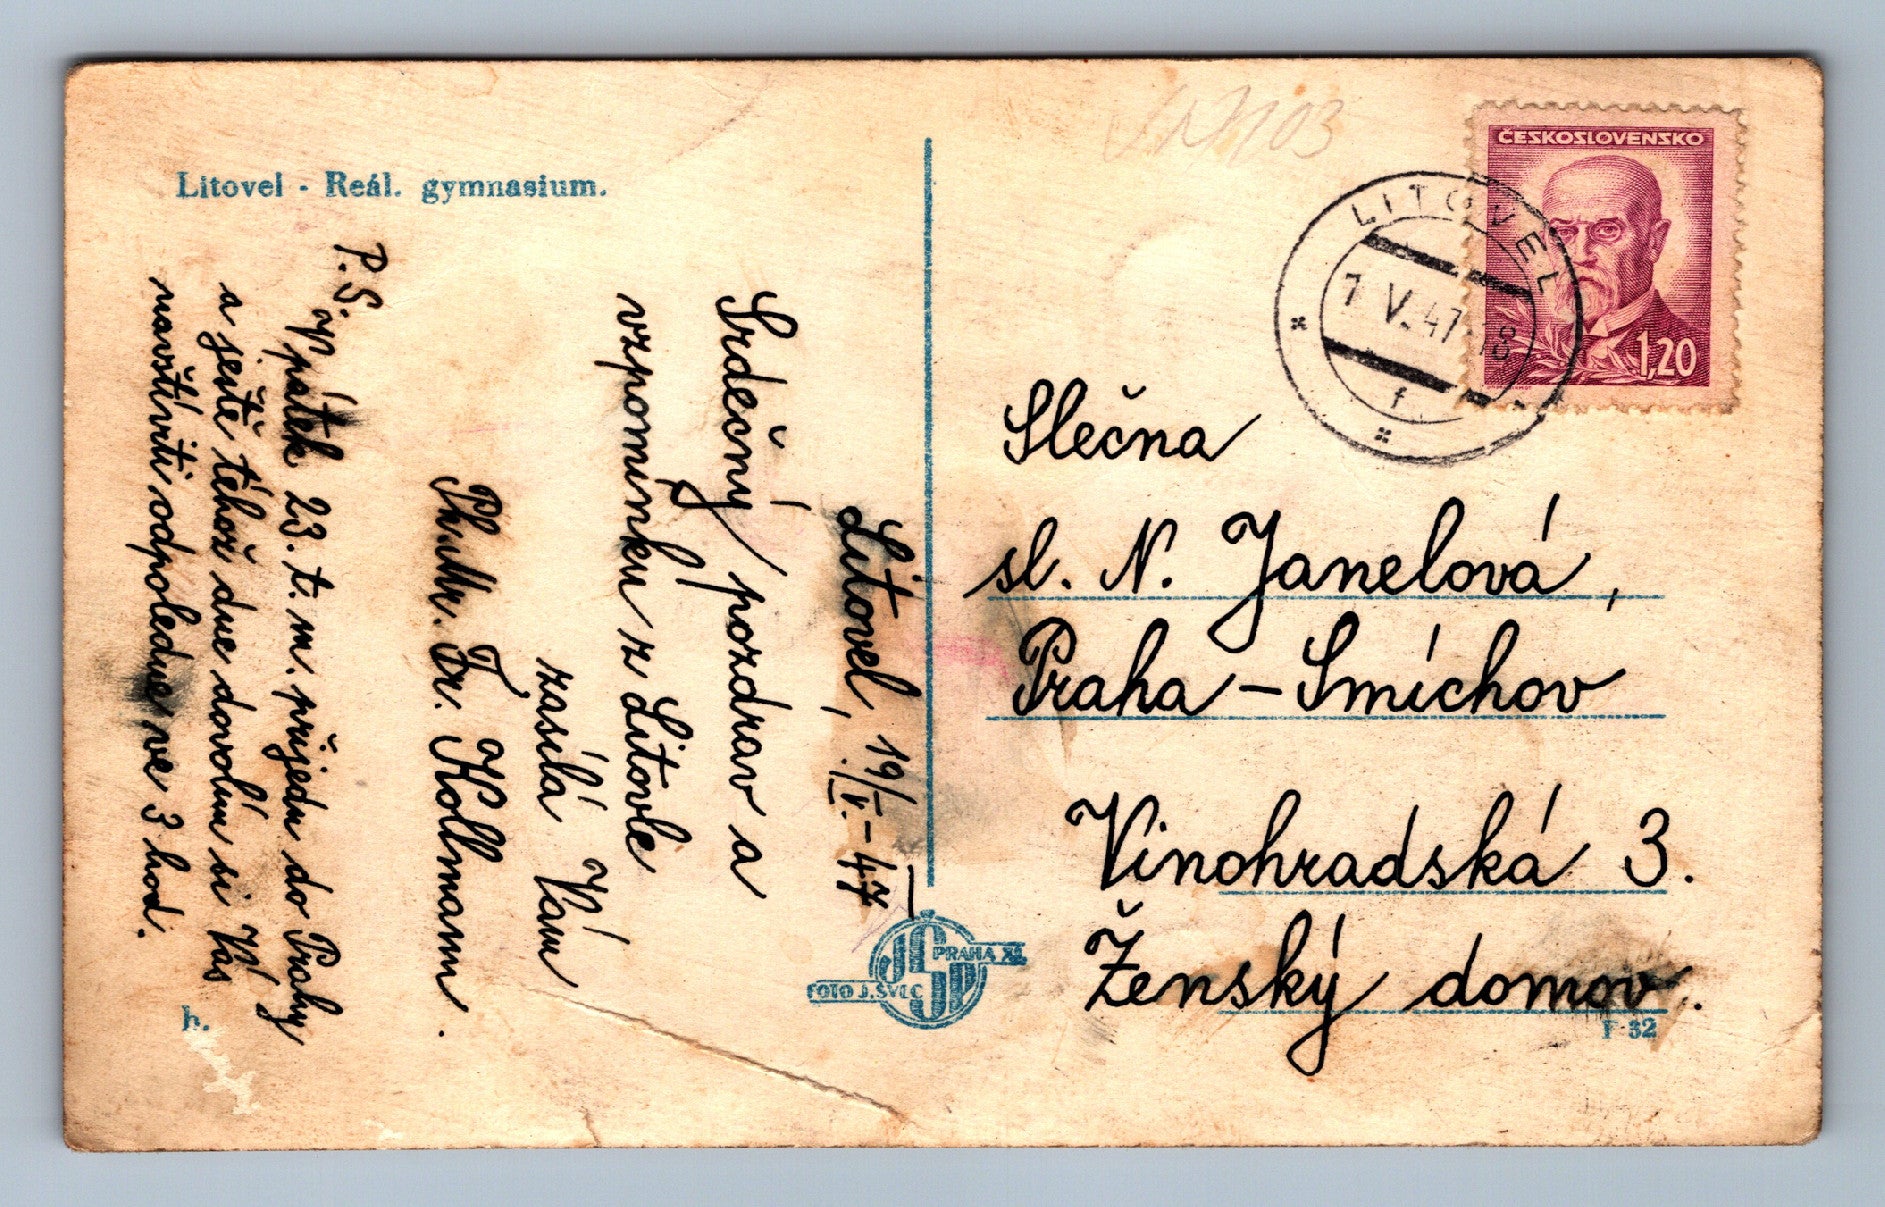 Litovel - Reál. gymnasium.
Litovel, 19/V.-47
Srdečný pozdrav a
vzpomínku z Litovle
zasílá Vám
Ph.Mr. Fr. Kollmann.
P.S.
V pátek 23. t. m. přijedu do Prahy
a ještě téhož dne dovolím si Vás
navštíviti odpoledne ve 3 hod.
h.
FOTO J. ŠVEC
PRAHA XI.
JŠP
ČESKOSLOVENSKO
1,20
LITOVEL
V. 47-18
f
Slečna
sl. N. Janelová,
Praha - Smíchov
Vinohradská 3.
Ženský domov.
F 32